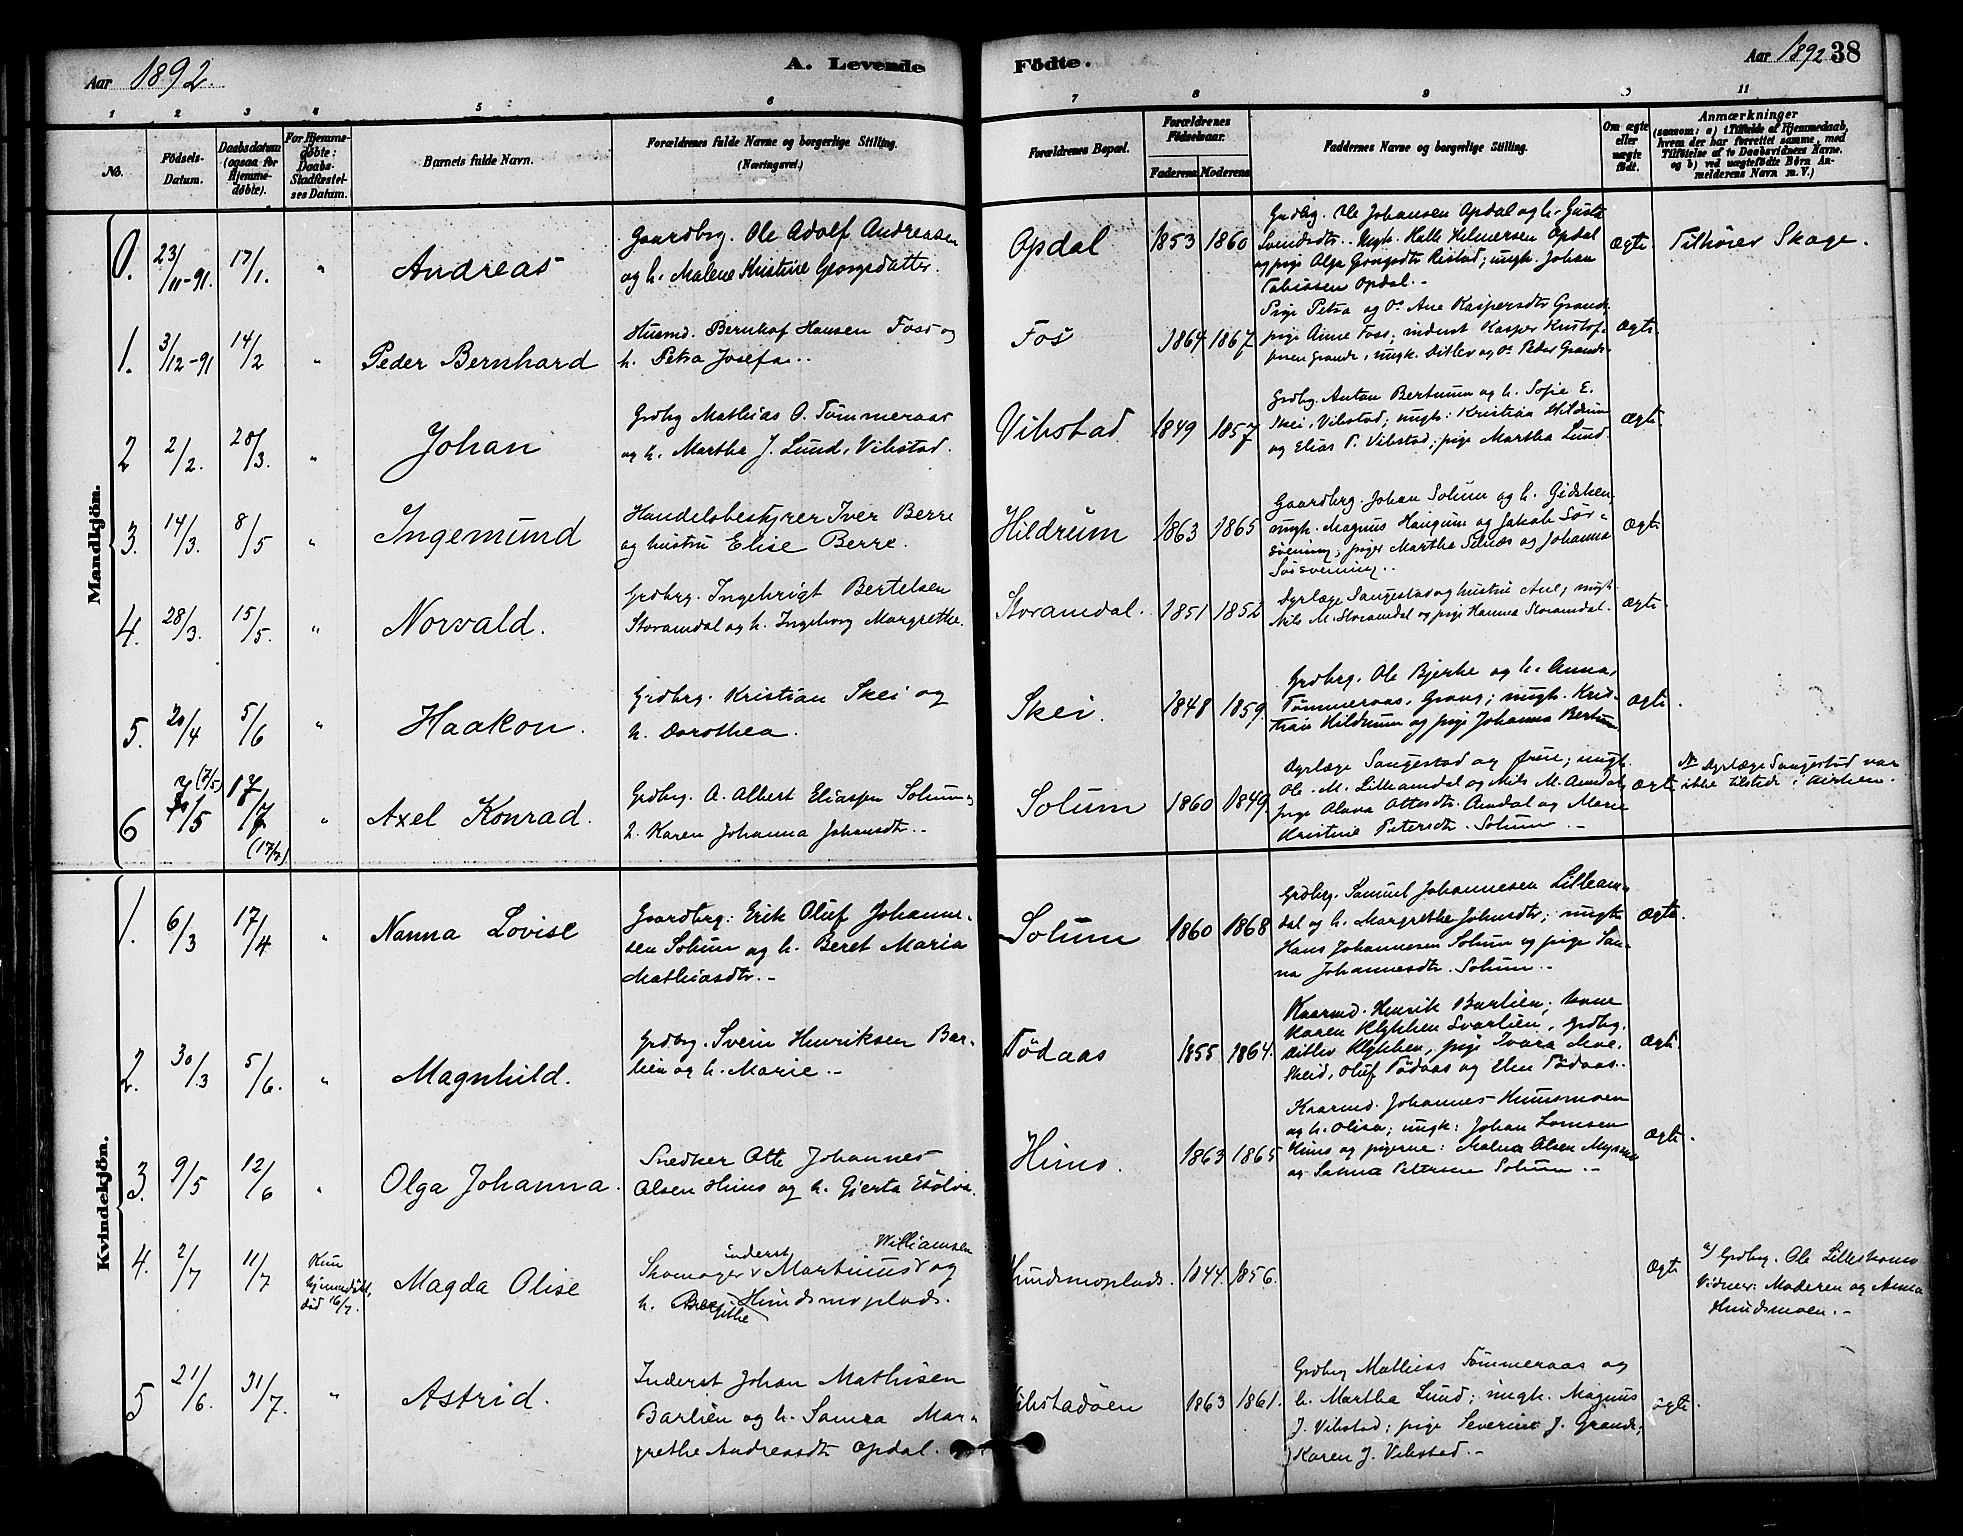 Aar 1892.
A. Levende
Födte.
Aar 1892
38
1 2 3 4 5 6 7 8 9 11
No.
Födsels-Datum.
Daabsdatum (ogsaa for Hjemme-döbte).
For Hjemme-döbte: Daabs-Stadfæstel-ses Datum.
Barnets fulde Navn.
Forældrenes fulde Navne og borgerlige Stilling. (Næringsvei.)
Forældrenes Bopæl.
Forældrenes Födselsaar.
Faderens Moderens
Faddernes Navne og borgerlige Stilling.
Om ægte eller uægte födt.
Anmærkninger
(saasom: a) i Tilfælde af Hjemmedaab,
hvem der har forrettet samme, med
Tilföielse af to Daabsvidners Navne.
og b) ved uægtefödte Börn An-
melderens Navn m. V.)
Mandkjön.
0. 23/11-91. 17/1. " Andreas
Gaardbrg. Ole Adolf Andreasen
og h. Malene Kristine Georgsdatter.
Opdal 1853 1860
Grdbrg. Ole Johansen Opdal og h. Gusta
Svendsdtr. Ungk. Halle Hilmersen Opdal
og pige Olga Georgsdtr Ristad; ungk. Johan
Tobiassen Opdal.-
Ægte. Tilhører Skage.
1. 3/12-91 14/2 " Peder Bernhard
Husmd. Bernhof Hansen Foss og
h. Petra Josefa..
Fos 1864 1867
Pige Petra og Do Ane Kaspersdtr Grande
pige Anne Foss; inderst Kasper Kristof-
fersen Grande, ungk. Ditlev og Do Peder Grande.
Ægte.
2 2/2. 20/3. " Johan
Grdbrg Mathias O. Tømmeraas
og h. Martha J. Lund, Vibstad.
Vibstad 1849 1857
Grdbrg. Anton Bertnum og h. Sofie E.
Skei, Vibstad; ungk: Kristian Hildrum
og Elias P. Vibstad; pige Martha Lund.
Ægte.
3. 14/3. 8/5 " Ingemund
Handelsbestyrer Iver Berre
og hustru Elise Berre.
Hildrum 1863 1865
Gaardbrg. Johan Solum og h. Gidsken,
ungk. Magnus Haugum og Jakob Sør-
svenning; piger Martha Selnæs og Johanna
Sørsvenning..
Ægte
4. 28/3. 15/5. " Norvald.
Grdbrg. Ingebrigt Bertelsen
Storamdal og h. Ingeborg Margrethe.
Storamdal. 1851 1852
Dyrlæge Saugestad og hustru Ane; ungk
Nils M. Storamdal og pige Hanna Storamdal.
Ægte.
5. 20/4 5/6 " Haakon.
Grdbrg. Kristian Skei og
h. Dorothea.
Skei. 1848 1859.
Grdbrg. Ole Bjerke og h. Anna,
Tømmeraas, Grong; ungk. Kris-
tian Hildrum og pige Johanna Bertnum
Ægte.
6 (7/5) 17/7 (17/7) " Axel Konrad.
Grdbrg. A. Albert Eliassen Solum og
h. Karen Johanna Johansdtr.-
Solum 1860 1849.
Dyrlæge Saugestad og frue; ungk.
Ole M. Lilleamdal og Nils M. Amdal,
pige Olava Ottesdtr. Amdal og Marie
Kristine Petersdtr. Solum.-
Ægte
Dyrlæge Saugestad var
ikke tilstede i Kirken.
Kvindekjön.
1. 6/3 17/4 " Nanna Lovise
Gaardbrg: Erik Oluf Johanne-
sen Solum og h. Beret Maria
Mathiasdtr.-
Solum 1860 1868
Grdbrg. Samuel Johannesen Lilleam-
dal og h. Margrethe Johnsdtr; ungk.
Hans Johannesen Solum og pige San-
na Johannesdtr. Solum.-
Ægte.
2. 30/3 5/6. " Magnhild.
Grdbrg. Svein Henriksen Bar-
lien og h. Marie.-
Fødaas 1855 1864.
Kaarmd. Henrik Barlien; kone
Karen Klykken Svarlien, Grdbrg.
Ditlev Klykken, pige Ivara Moe
Skeid, Oluf Fødaas og Elen Fødaas..
Ægte.
3. 9/5 12/6 " Olga Johanna.
Snedker Otto Johannes
Olsen Huns og h. Gjerta
Huns. 1863 1865
Kaarmd. Johannes Hunsmoen
og h. Olisa; ungk: Johan Lornsen
Huns og pigerne: Malna Olsen
og Sanna Petersen Solum.-
Ægte.
4. 2/7 11/7 Kun hjemmedøbt, død 16/7. Magda Olise
inderst Williamsen
Skomager Martinus og
h. Bergitte Hundsmoplads.
Hundsmoplads. 1844. 1856.
Ægte
a) Grdbrg. Ole
Vidner: Moderen og Anna
Hundsmoen.-
5 21/6. 31/7. " Astrid.
Inderst Johan Mathisen
Barlien og h. Sanna Mar-
grethe Andreasdtr Opdal.
Vibstadøen 1863 1861.
Grdbrg Mathias Tømmeraas og
h. Martha Lund; ungk. Magnus
J. Vibstad; pige Severine J. Grande,
Karen J. Vibstad.-
ægte.